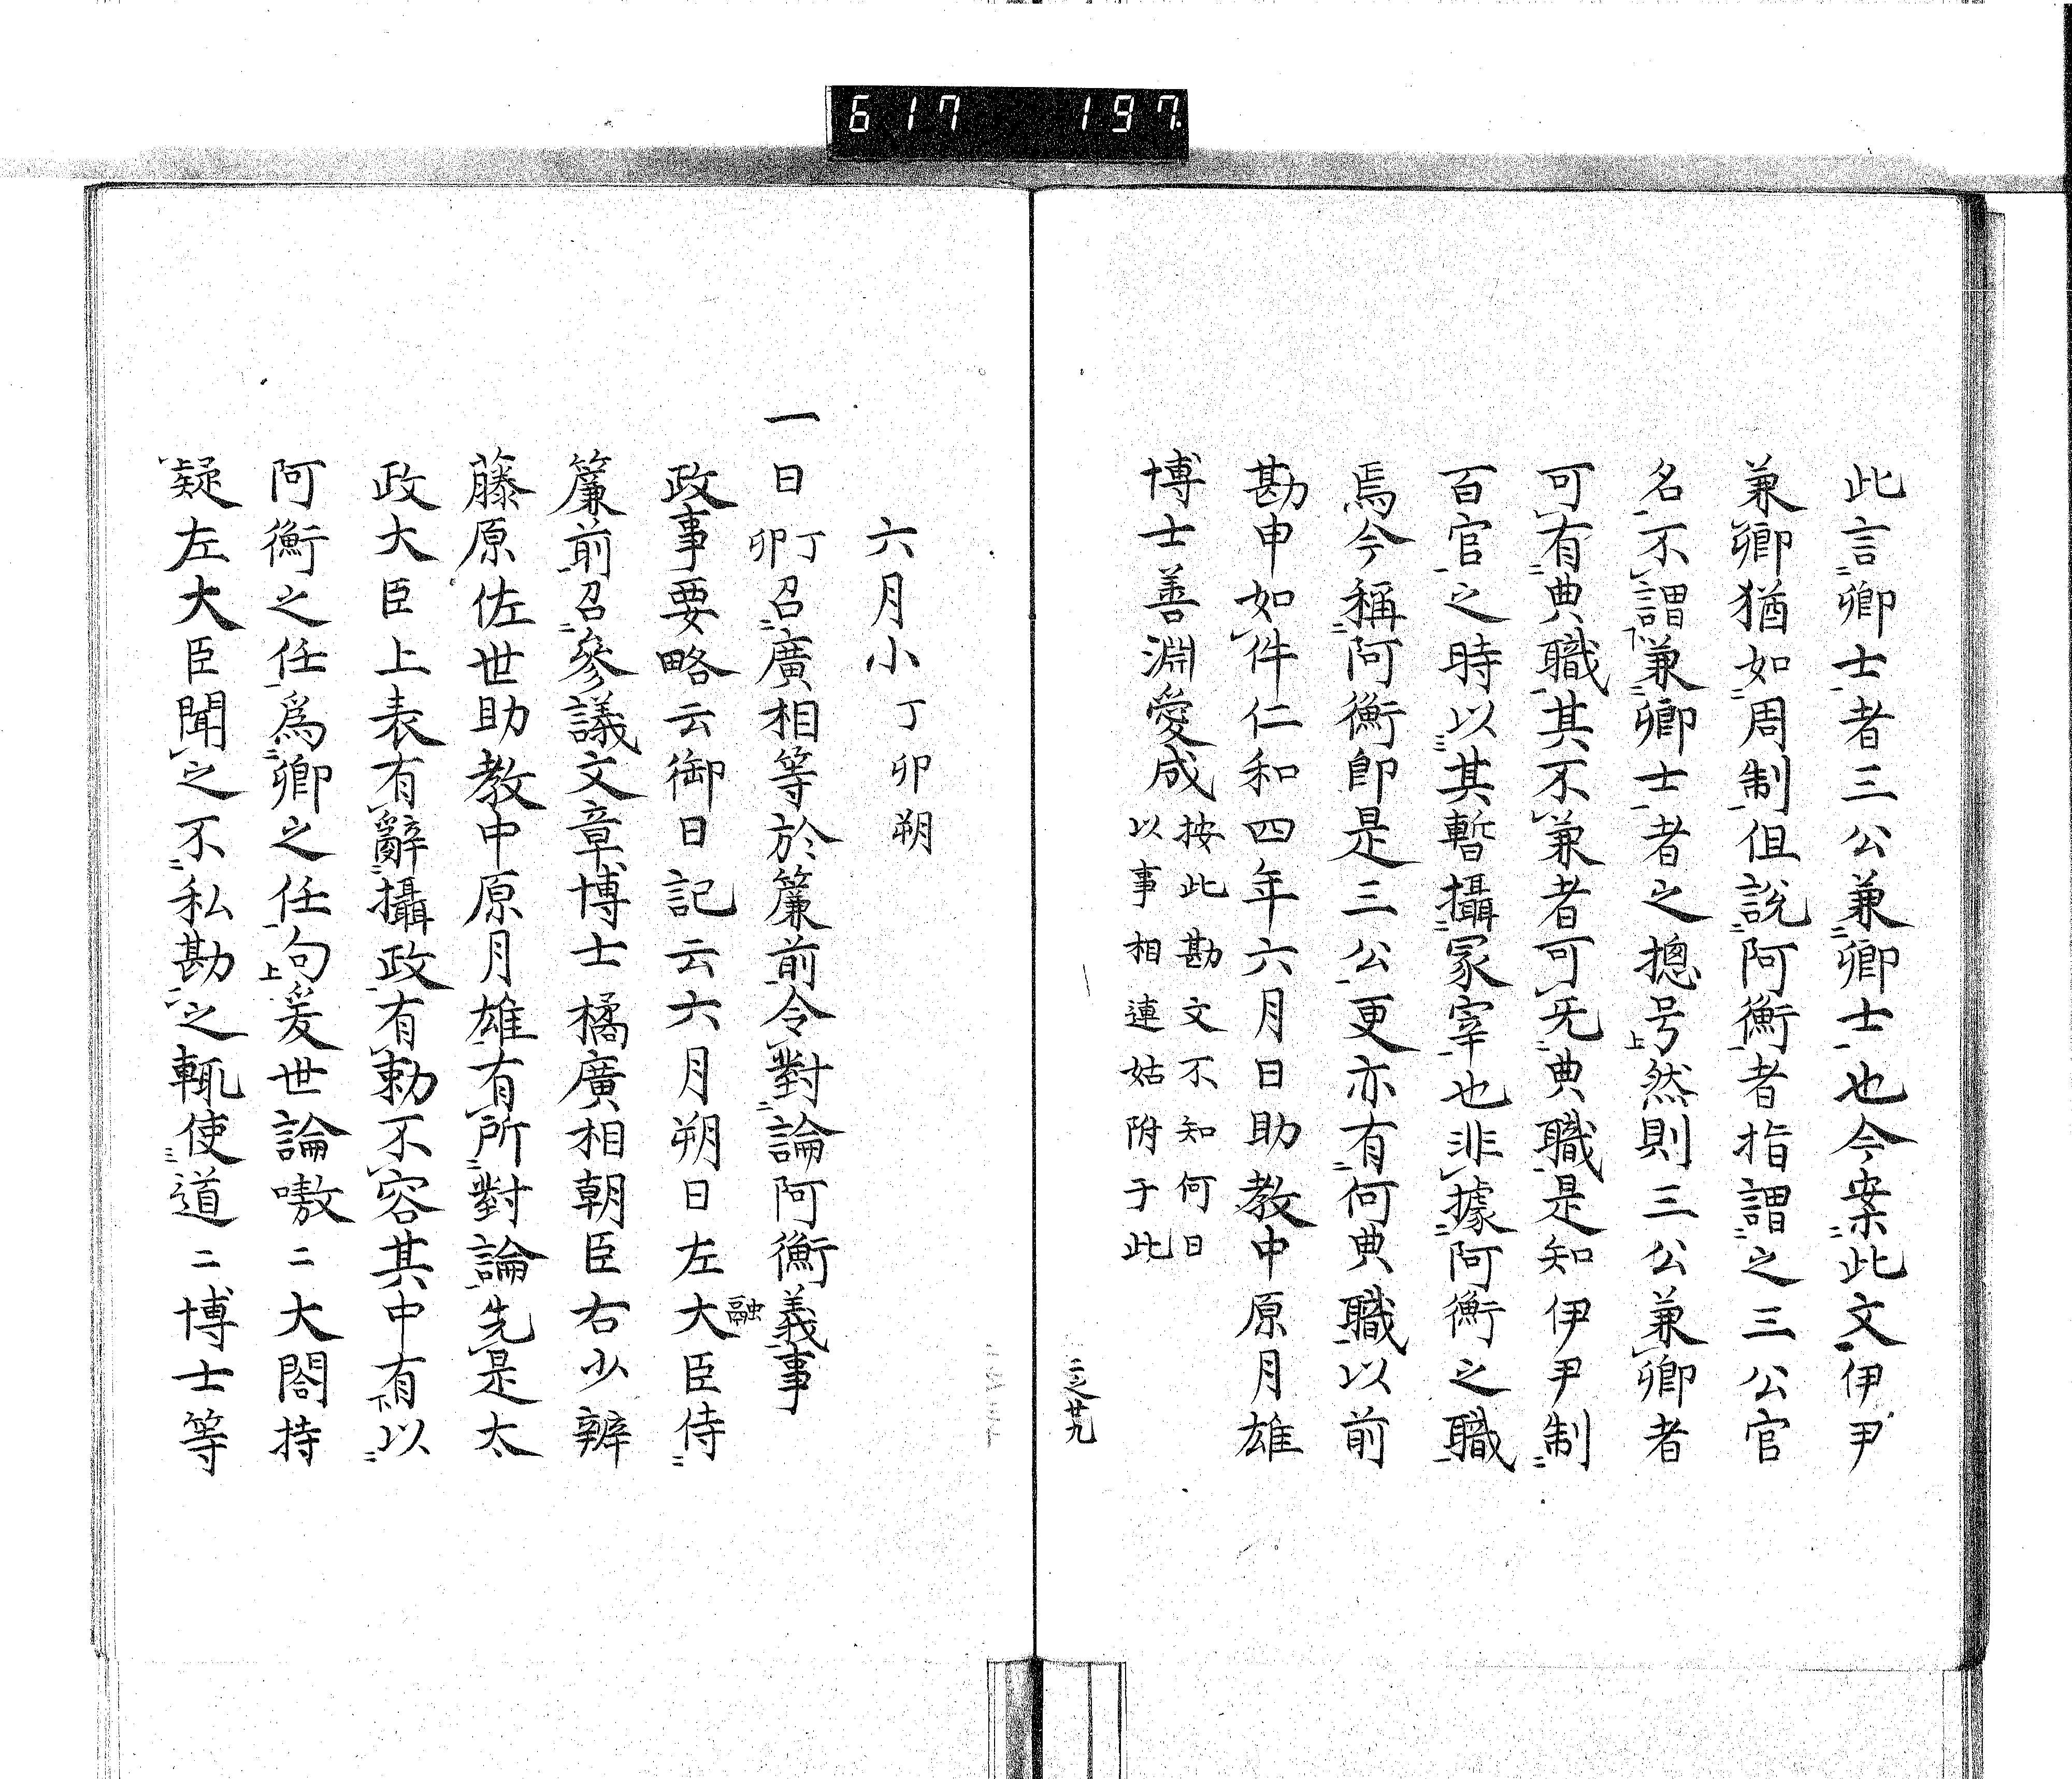 617 197.
此言卿士者三公兼卿士也今案此文伊尹
兼卿猶如周制但説阿衡者指謂之三公官
名不謂兼卿士者之摠号然則三公兼卿者
可有典職其不兼者可无典職是知伊尹制
百官之時以其暫攝冢宰也非據阿衡之職
焉今稱阿衡卽是三公更亦有何典職以前
勘申如件仁和四年六月日助教中原月雄
博士善淵愛成按此勘文不知何日
以事相連姑附于此
二之廿九
六月小丁卯朔
一日丁卯召廣相等於簾前令對論阿衡義事
政事要略云御日記云六月朔日左大臣融侍
簾前召參議文章博士橘廣相朝臣右少辨
藤原佐世助教中原月雄有所對論先是太
政大臣上表有辭攝政有勅不容其中有以
阿衡之任爲卿之任句爰世論嗷〻大閤持
疑左大臣聞之不私勘之輒使道〻博士等